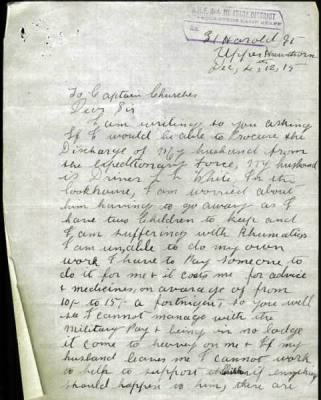 31 Harold St
Upper Hawthorn
Dec, 4th 12, 15
To Captain Churches
Dear Sir
I am writing to you asking
If I would be able to procure the
Discharge of my husband from
the expeditionary Force, my husband
is Driver J. L. White, In the
Cookhouse, I am worried about
him having to go away as I
have two Children to keep and
I am suffering with Rhumatism
I am unable to do my own
work I have to Pay someone to
do it for me & it costs me for advice
& medicines, on avarage of from
10/- to 15/- a fortnight, so you will
see I cannot manage with the
military Pay & being in no Lodge
it come to heavy on me & If my
husband leaves me I cannot work
to help to support if anything
should happen to him, there are